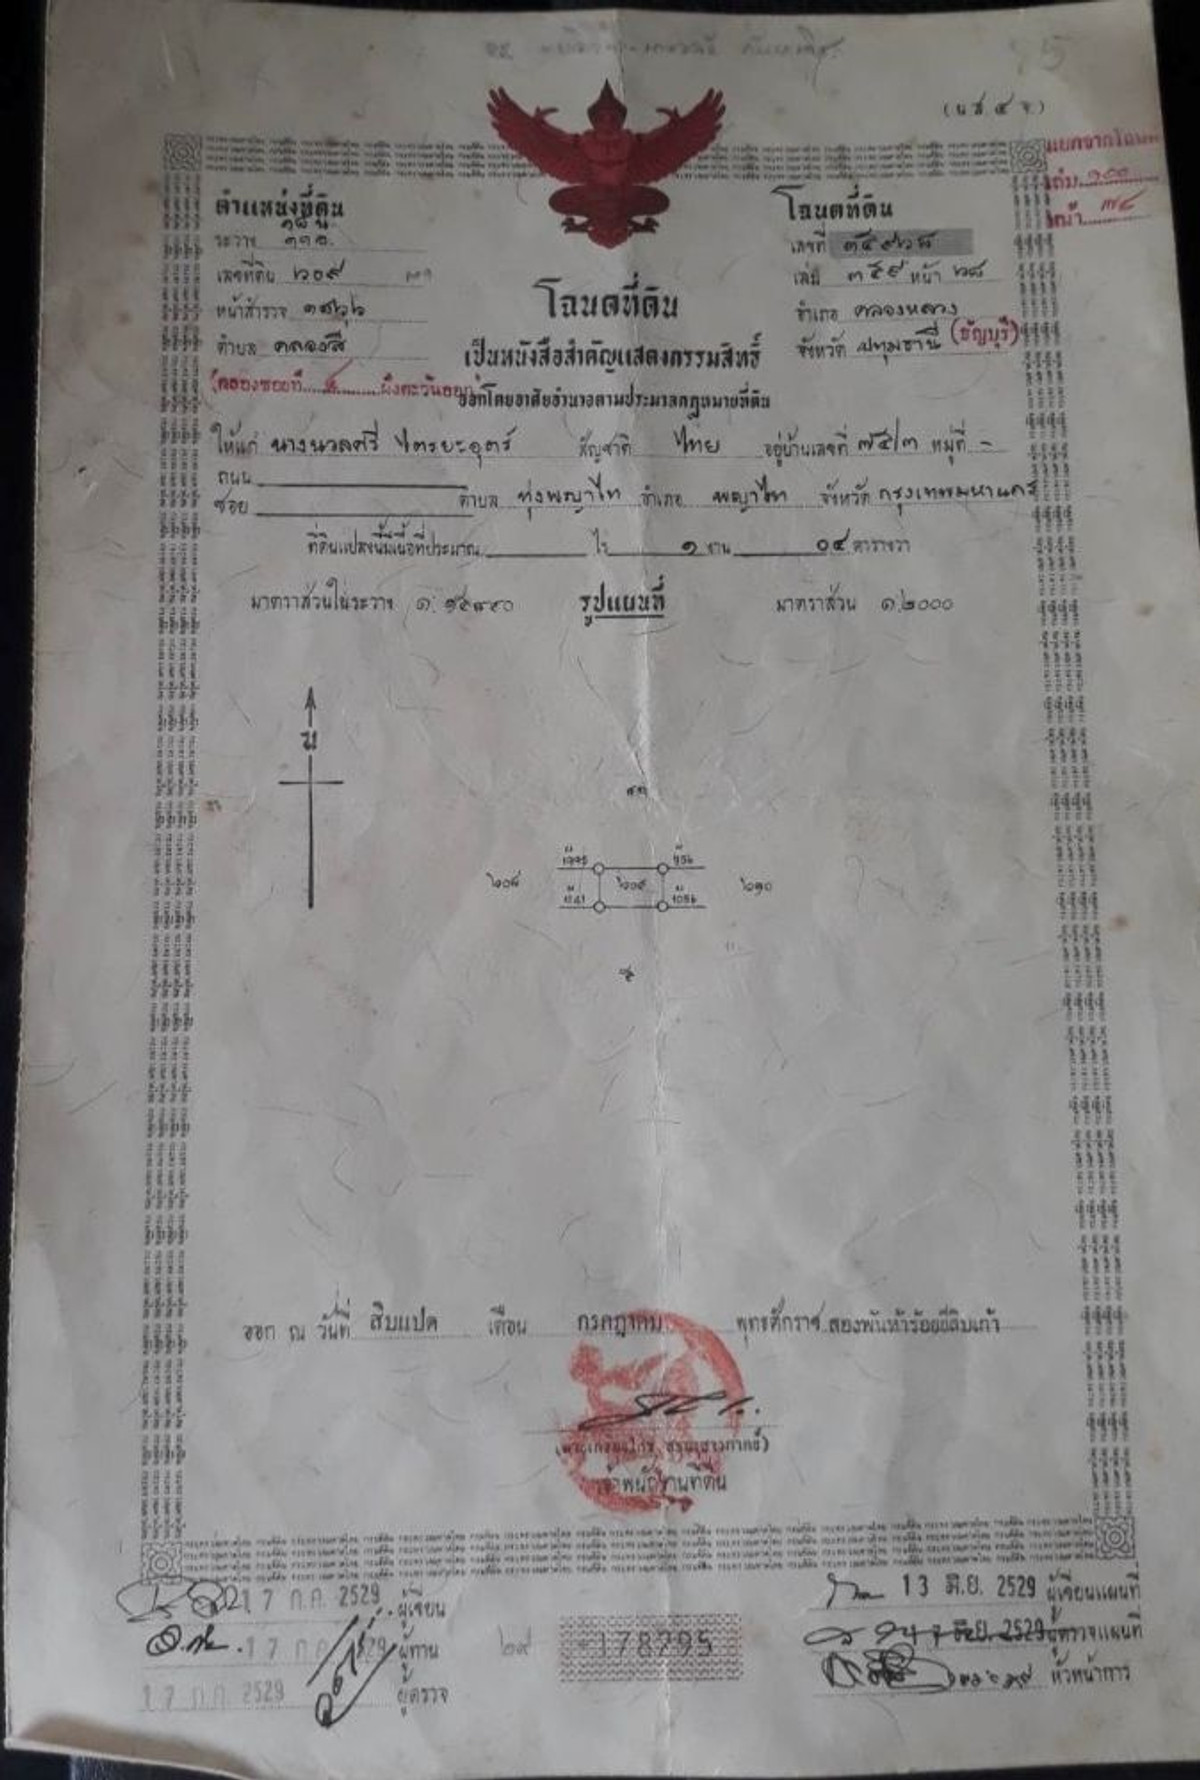 (น.ส. ๔ จ.)
แยกจากโฉนด
เล่ม ๑๐๐
หน้า ๗๘
ตำแหน่งที่ดิน
ระวาง
เลขที่ดิน ๒๐๙
หน้าสำรวจ
ตำบล คลองสี่
(คลองซอยที่ ๔ ฝั่งตะวันออก)
โฉนดที่ดิน
เลขที่ ๓๕๙๒๘
เล่ม ๓๕๙ หน้า ๒๘
อำเภอ คลองหลวง
จังหวัด ปทุมธานี (ธัญบุรี)
โฉนดที่ดิน
เป็นหนังสือสำคัญแสดงกรรมสิทธิ์
ออกโดยอาศัยอำนาจตามประมวลกฎหมายที่ดิน
ให้แก่ นางนวลศรี ไตรยะอุตร์ สัญชาติ ไทย อยู่บ้านเลขที่ ๗๕/๓ หมู่ที่ -
ถนน
ซอย ตำบล ทุ่งพญาไท อำเภอ พญาไท จังหวัด กรุงเทพมหานคร
ที่ดินแปลงนี้มีเนื้อที่ประมาณ ไร่ ๑ งาน ๐๔ ตารางวา
มาตราส่วนในระวาง รูปแผนที่ มาตราส่วน ๑:๒๐๐๐
น
๒๐๘ ๒๐๙ ๒๑๐
ออก ณ วันที่ สิบแปด เดือน กรกฎาคม พุทธศักราช สองพันห้าร้อยยี่สิบเก้า
เจ้าพนักงานที่ดิน
17 ก.ค. 2529 ผู้เขียน
17 ก.ค. 2529 ผู้ทาน
17 ก.ค. 2529 ผู้ตรวจ
๒๙
178295
13 มิ.ย. 2529 ผู้เขียนแผนที่
มิ.ย. 2529 ผู้ตรวจแผนที่
หัวหน้าการ